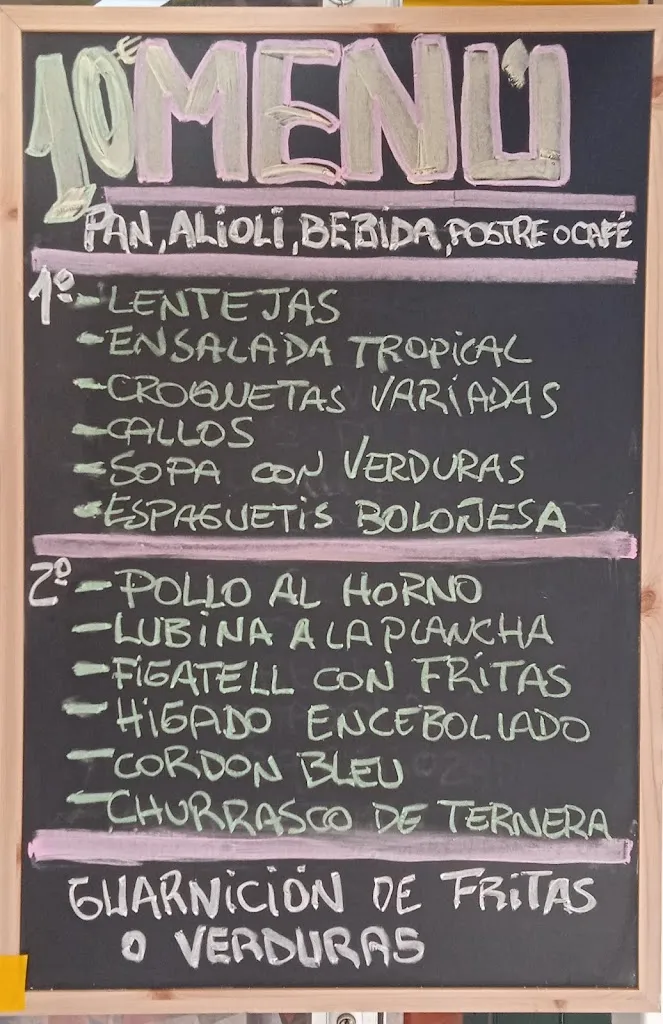 10€ MENÚ
PAN, ALIOLI, BEBIDA, POSTRE O CAFÉ
1º - LENTEJAS
- ENSALADA TROPICAL
- CROQUETAS VARIADAS
- CALLOS
- SOPA CON VERDURAS
- ESPAGUETIS BOLOÑESA
2º - POLLO AL HORNO
- LUBINA A LA PLANCHA
- FIGATELL CON FRITAS
- HIGADO ENCEBOLLADO
- CORDON BLEU
- CHURRASCO DE TERNERA
GUARNICIÓN DE FRITAS
O VERDURAS